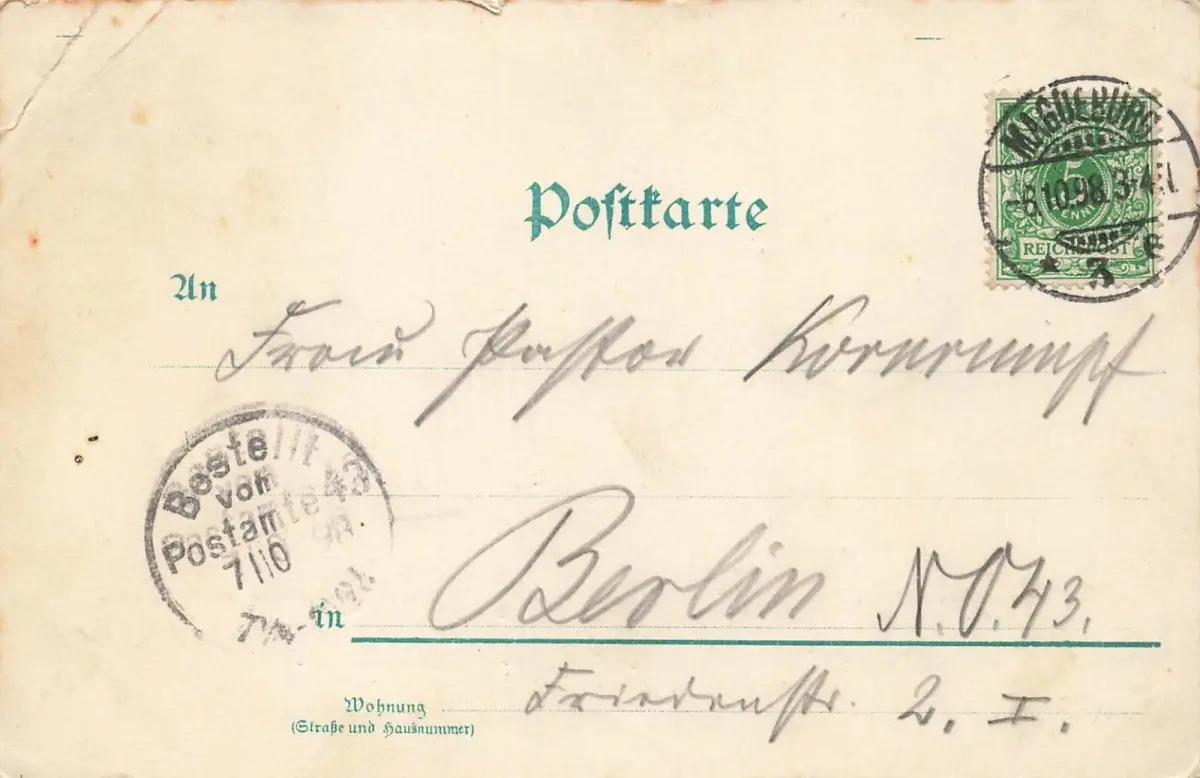 Postkarte
MAGDEBURG
-6.10.98. 3-4N.
* 3 e
5
PFENNIG
REICHSPOST
An
Frau Pastor Kornrumpf
Bestellt
vom
Postamte 43
7|10 98
in Berlin N.O.43.
Wohnung
(Straße und Hausnummer)
Friedenstr. 2. I.